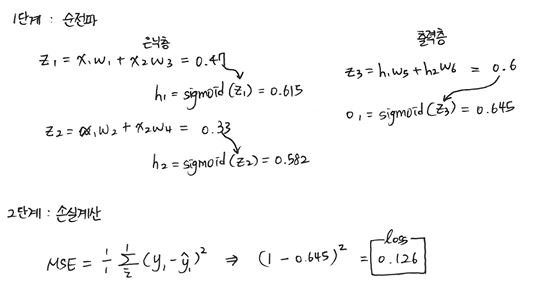 1단계 : 순전파
은닉층
z₁ = x₁w₁ + x₂w₃ = 0.47
h₁ = sigmoid(z₁) = 0.615
z₂ = x₁w₂ + x₂w₄ = 0.33
h₂ = sigmoid(z₂) = 0.582
출력층
z₃ = h₁w₅ + h₂w₆ = 0.6
o₁ = sigmoid(z₃) = 0.645
2단계 : 손실계산
MSE = 1/1 Σ (y₁ - ŷ₁)² ⇒ (1 - 0.645)² = 0.126
loss